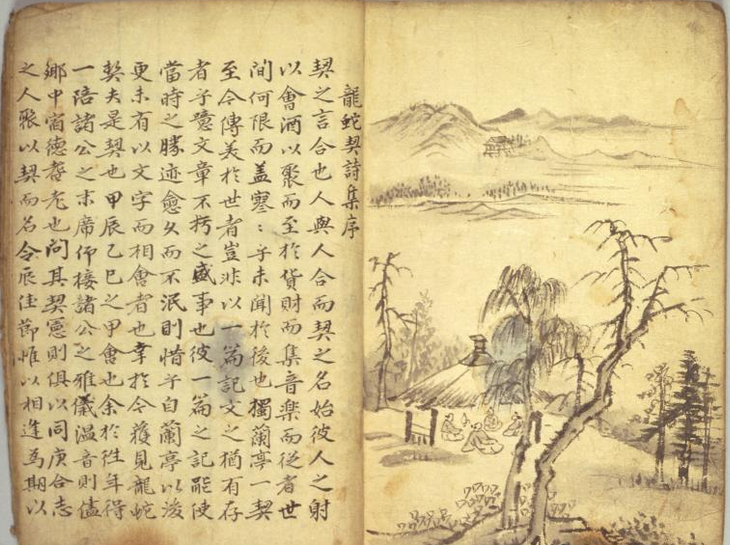 龍蛇契詩集序
契之言合也人與人合而契之名始彼人之射
以會酒以聚而至於貨財而集音樂而從者世
間何限而盖寥〻乎未聞於後也獨蘭亭一契
至今傳美於世者豈非以一篇記文之猶有存
者乎噫文章不朽之盛事也彼一篇之記能使
當時之勝迹愈久而不泯則惜乎自蘭亭以後
更未有以文字而相會者也幸於今獲見龍蛇
契夫是契也甲辰乙巳之甲會也余於徃年得
一陪諸公之末席仰接諸公之雅儀温音則儘
鄉中宿德耆老也問其契憲則俱以同庚合志
之人聚以契而名令辰佳節惟以相逢為期以